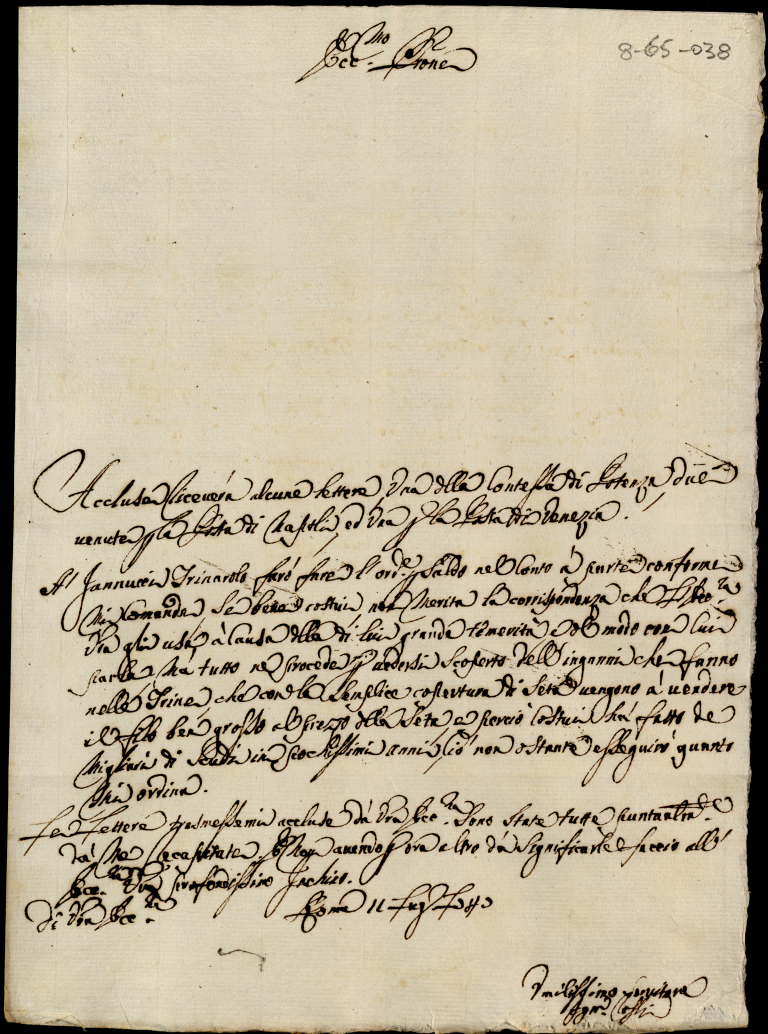 8-65-038
Ecc.mo Prone
Accluse riceverà alcune lettere Una della Contessa di Potenza due
venute p la Posta di Napoli, ed Una p la Posta di Venezia.
A' Jannucci Trinarolo farò fare l'ord.e p saldo nel Conto à parte conforme
Mi Comanda, Se bene costui non Merita la corrispondenza che
Vra gli usa, à Causa della di lui grande temerità e del modo con lui
parla, Mà tutto ne procede p vedersi scoperto dell'inganni che fanno
nelle Trine, che con la semplice copertura di Seta vengono à vendere
il filo ben grosso al prezzo della Seta e perciò costui hà fatto de
Migliara di Scudi in pochissimi anni, ciò non ostante esseguirò quanto
Mi ordina.
Le Lettere trasmessemi accluse dà Vra Ecc.za Sono state tutte
dà Me recapitate, e Non avendo p ora altro dà Significarle faccio all'
Ecc.za Vra profondissimo Inchino.
Di Vra Ecc.za Roma 11 Lug.o
Umilissimo Servitore